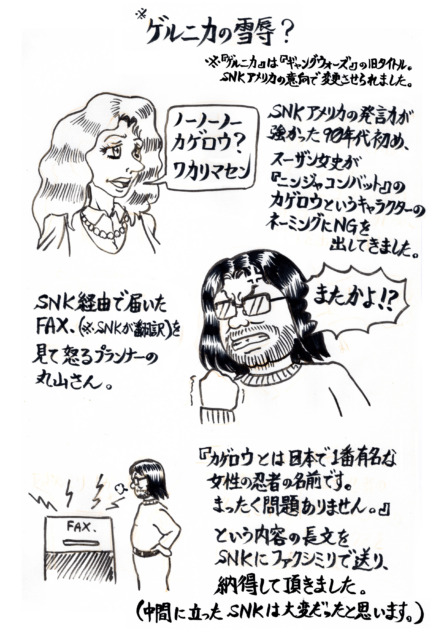 ※ゲルニカの雪辱？
※『ゲルニカ』は『ギャングウォーズ』の旧タイトル。
SNKアメリカの意向で変更させられました。
ノーノーノー
カゲロウ？
ワカリマセン
SNKアメリカの発言力が
強かった90年代初め、
スーザン女史が
『ニンジャコンバット』の
カゲロウというキャラクターの
ネーミングにNGを
出してきました。
またかよ!?
SNK経由で届いた
FAX、(※SNKが翻訳)を
見て怒るプランナーの
丸山さん。
FAX.
『カゲロウとは日本で1番有名な
女性の忍者の名前です。
まったく問題ありません。』
という内容の長文を
SNKにファクシミリで送り、
納得して頂きました。
(中間に立ったSNKは大変だったと思います。)